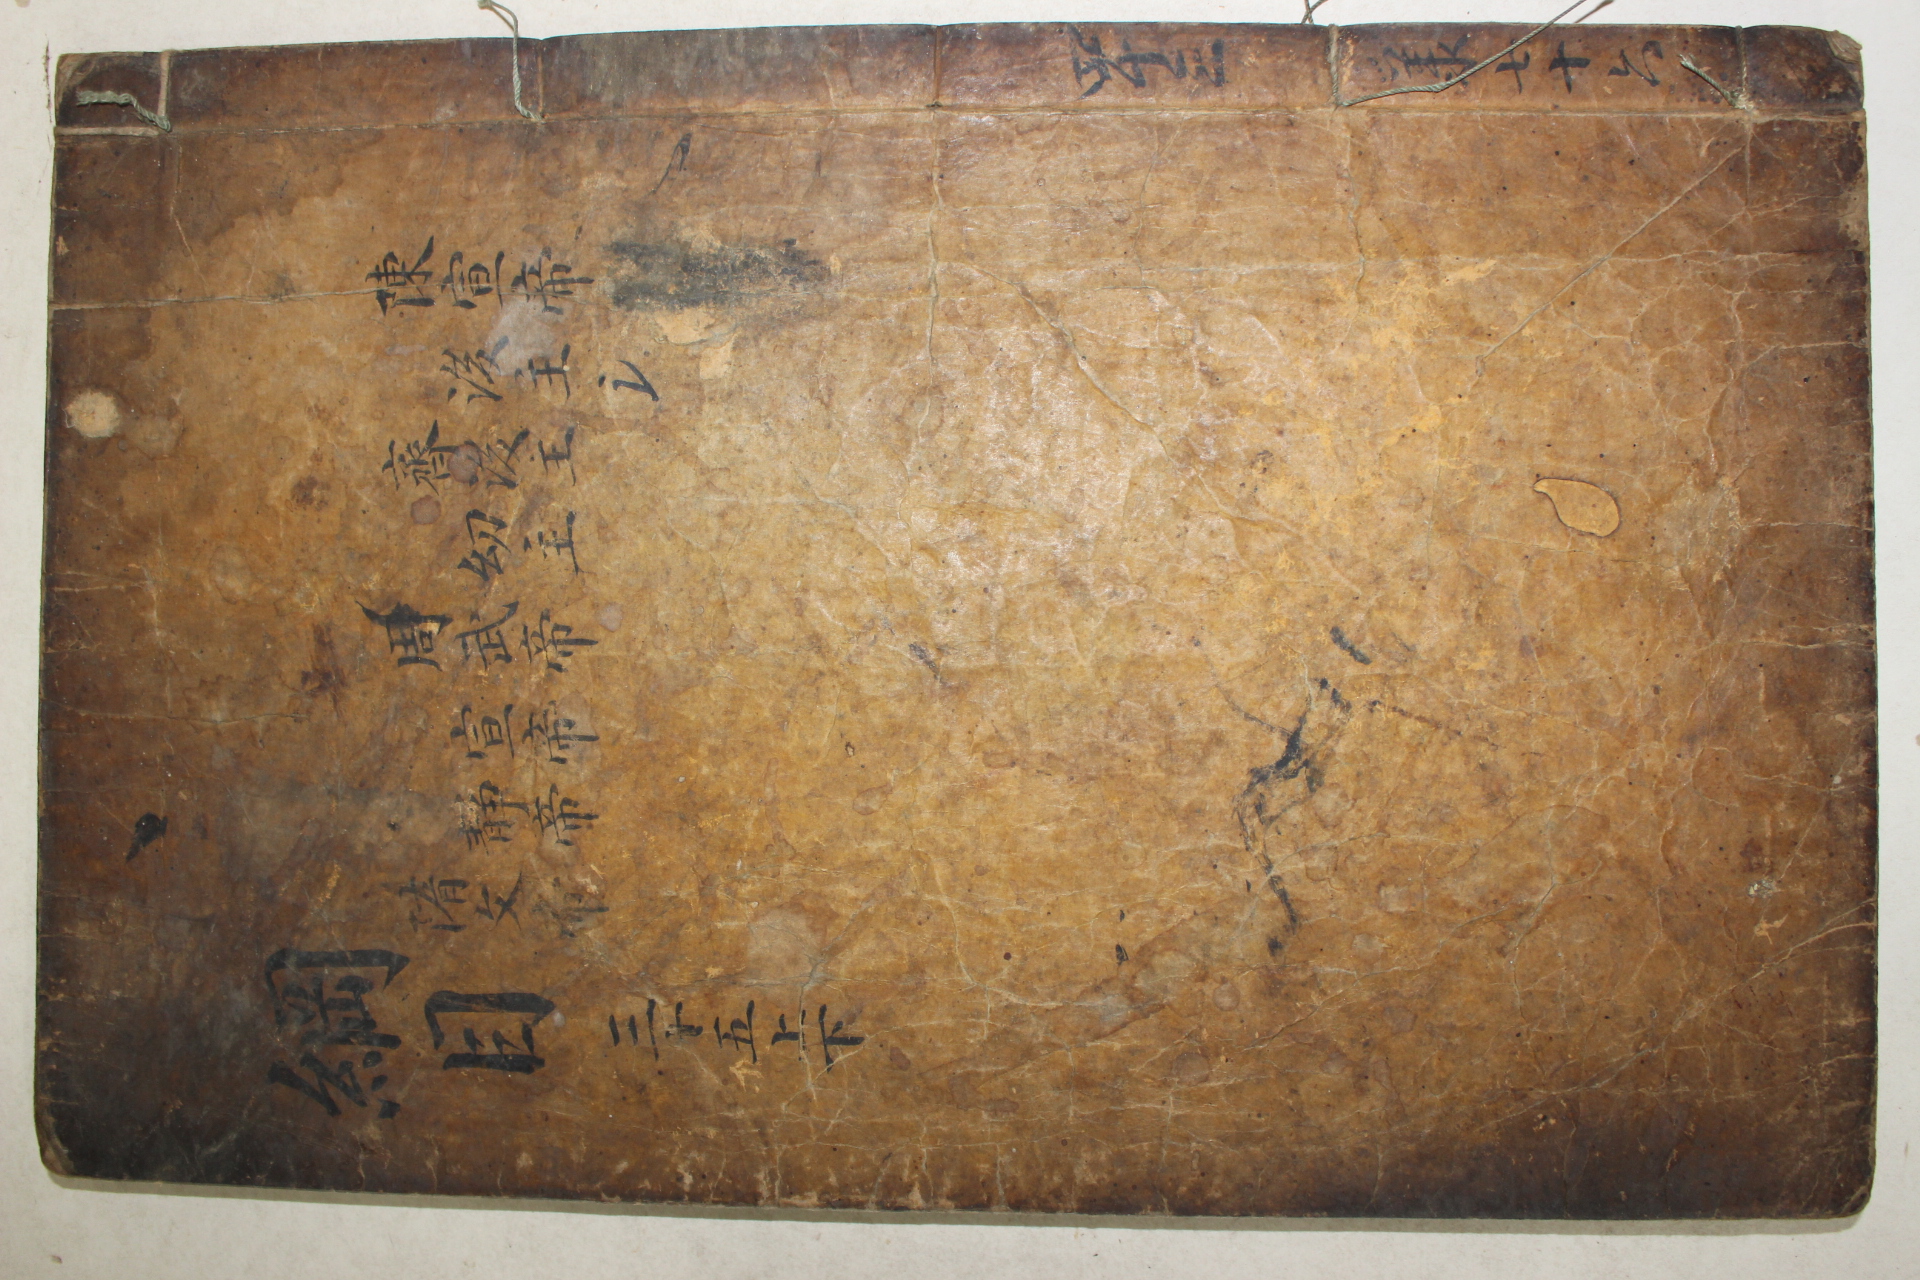 七十
陳宣帝
後主
齊後主
幼主
周武帝
宣帝
靜帝
隋文帝
綱目 三十五上下